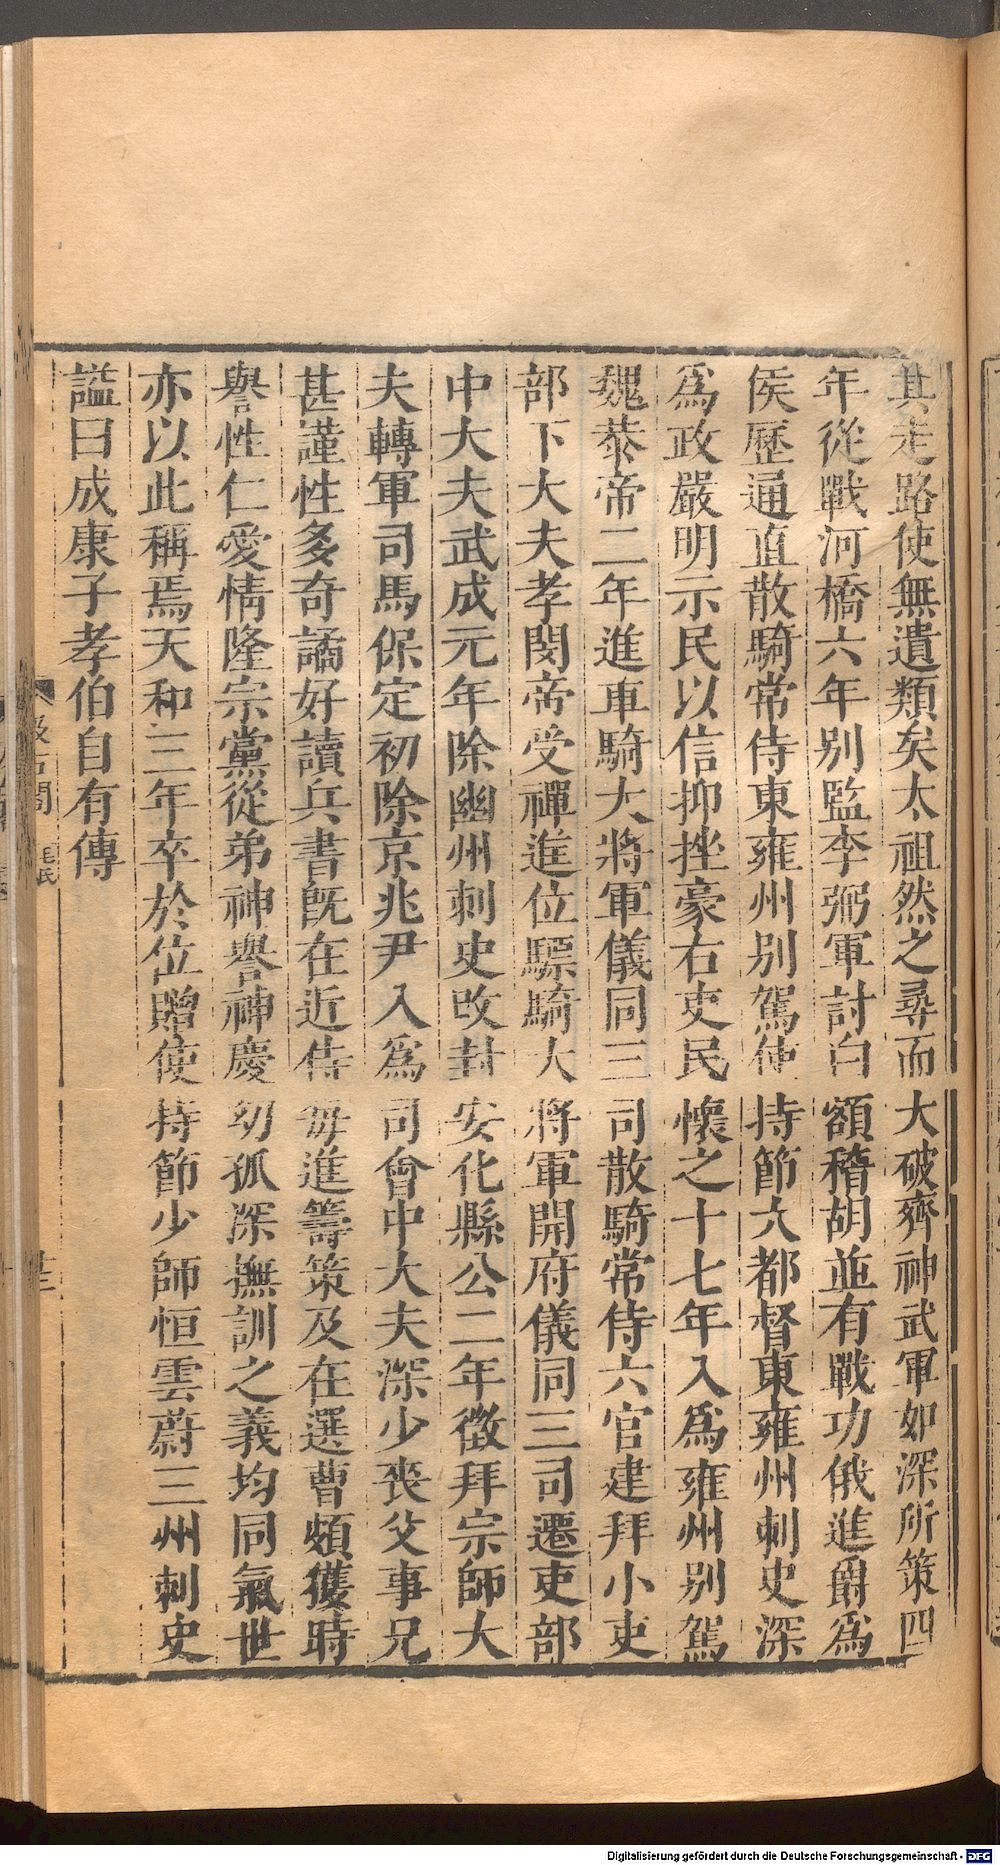 其走路使無遺類矣太祖然之尋而大破齊神武軍如深所策四
年從戰河橋六年別監李弼軍討白額稽胡並有戰功俄進爵爲
侯歷通直散騎常侍東雍州別駕使持節大都督東雍州刺史深
爲政嚴明示民以信抑挫豪右吏民懷之十七年入爲雍州別駕
魏恭帝二年進車騎大將軍儀同三司散騎常侍六官建拜小吏
部下大夫孝閔帝受禪進位驃騎大將軍開府儀同三司遷吏部
中大夫武成元年除幽州刺史改封安化縣公二年徵拜宗師大
夫轉軍司馬保定初除京兆尹入爲司會中大夫深少喪父事兄
甚謹性多奇譎好讀兵書既在近侍每進籌策及在選曹頗獲時
譽性仁愛情隆宗黨從弟神譽神慶幼孤深撫訓之義均同氣世
亦以此稱焉天和三年卒於位贈使持節少師恒雲蔚三州刺史
謚曰成康子孝伯自有傳
汲古閣
毛氏
Digitalisierung gefördert durch die Deutsche Forschungsgemeinschaft - DFG